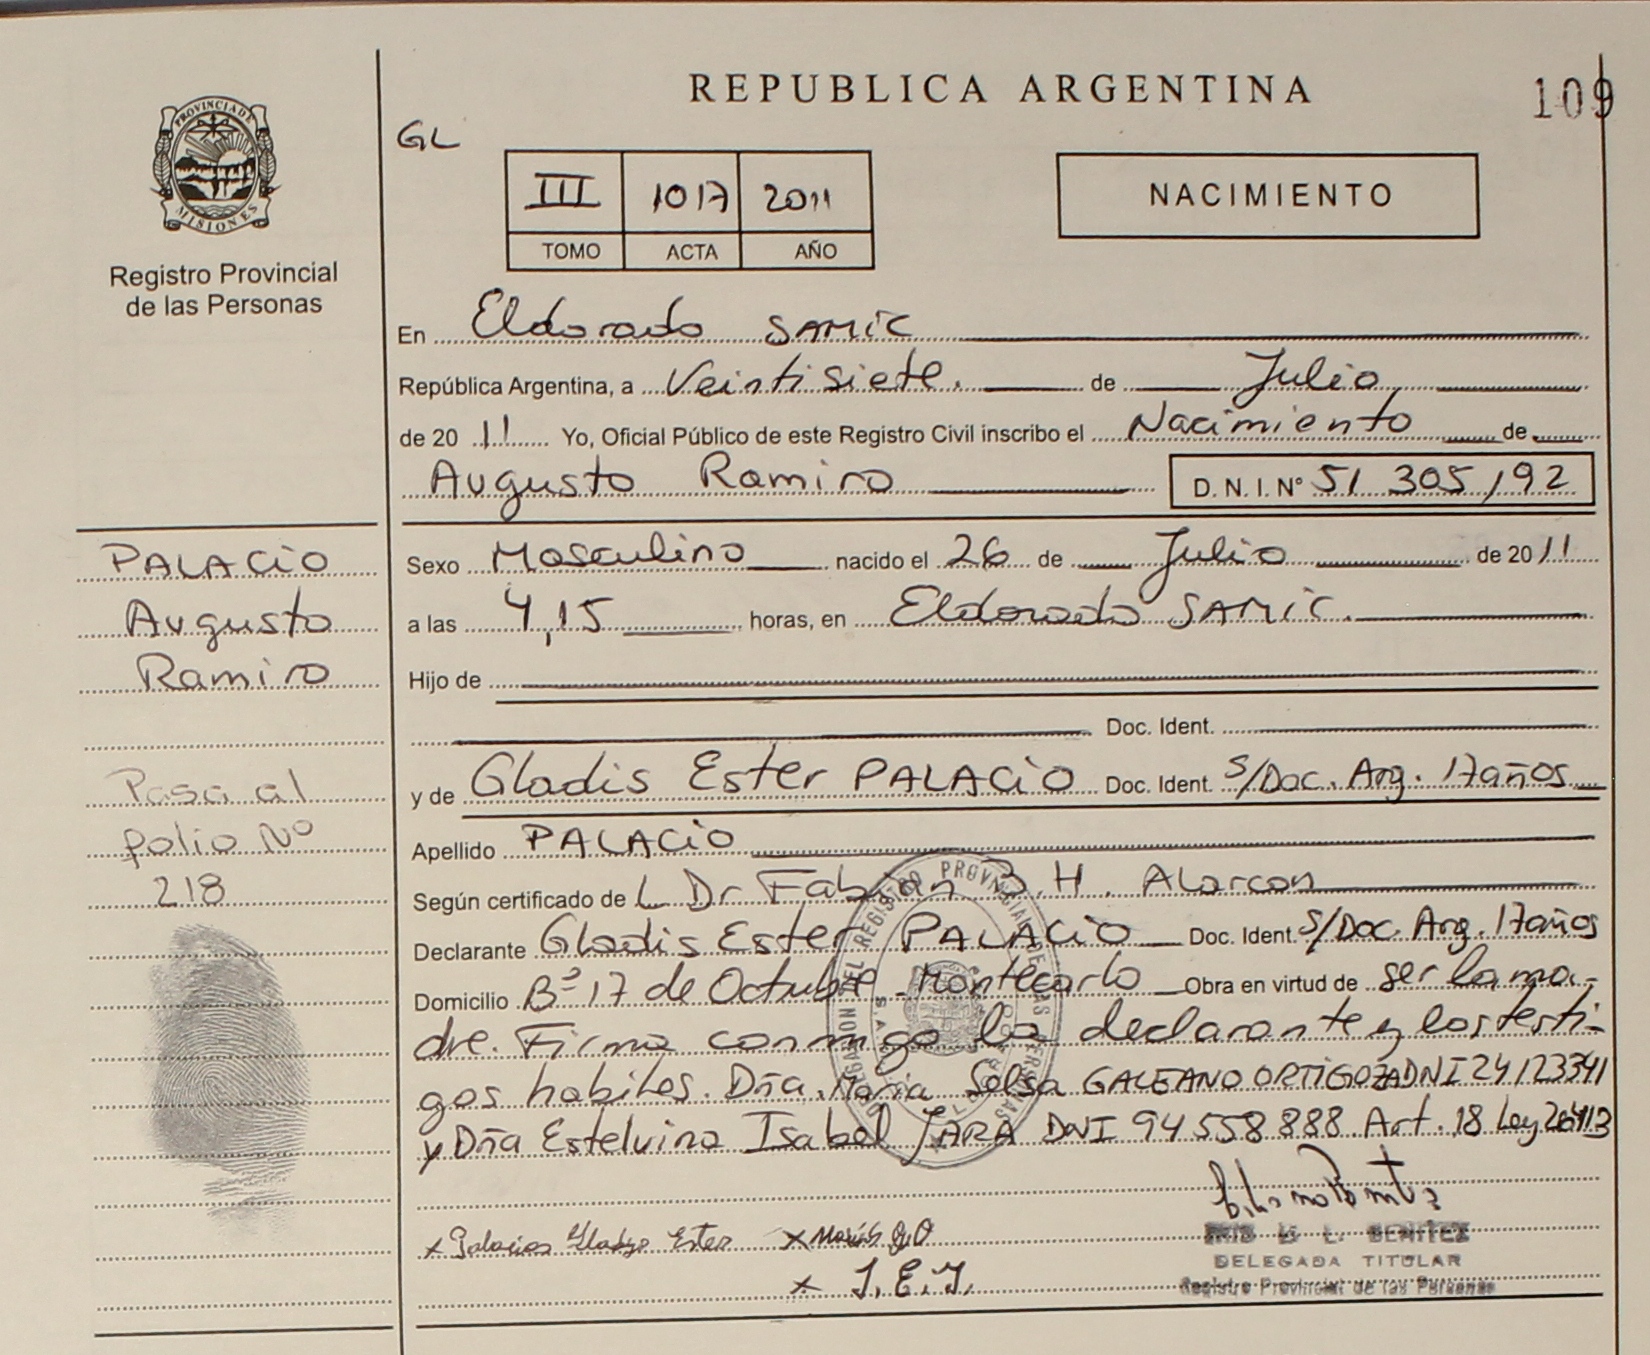 REPUBLICA ARGENTINA
109
PROVINCIA DE
MISIONES
Registro Provincial
de las Personas
GL
III 1017 2011
TOMO ACTA AÑO
NACIMIENTO
En Eldorado SAMIC
República Argentina, a Veintisiete. de Julio
de 2011 Yo, Oficial Público de este Registro Civil inscribo el Nacimiento de
Augusto Ramiro D.N.I.Nº 51 305 192
PALACIO
Augusto
Ramiro
Pasa al
folio Nº
218
Sexo Masculino nacido el 26 de Julio de 2011
a las 4,15 horas, en Eldorado SAMIC.
Hijo de
Doc. Ident.
y de Gladis Ester PALACIO Doc. Ident. S/Doc. Arg. 17años
Apellido PALACIO
Según certificado de L Dr Fabian B. H. Alarcon
Declarante Gladis Ester PALACIO Doc. Ident S/Doc. Arg. 17años
Domicilio Bº 17 de Octubre Montecarlo Obra en virtud de ser la ma-
dre. Firma conmigo la declarante y los testi-
gos habiles. Dña. Maria Selsa GALEANO ORTIGOZA DNI 24123341
y Dña Estelvina Isabel JARA DNI 94558888 Art. 18 Ley 26413
x Palacios Gladys Ester x
x J.E.J.
B L. BENITEZ
DELEGADA TITULAR
Registro Provincial de las Personas